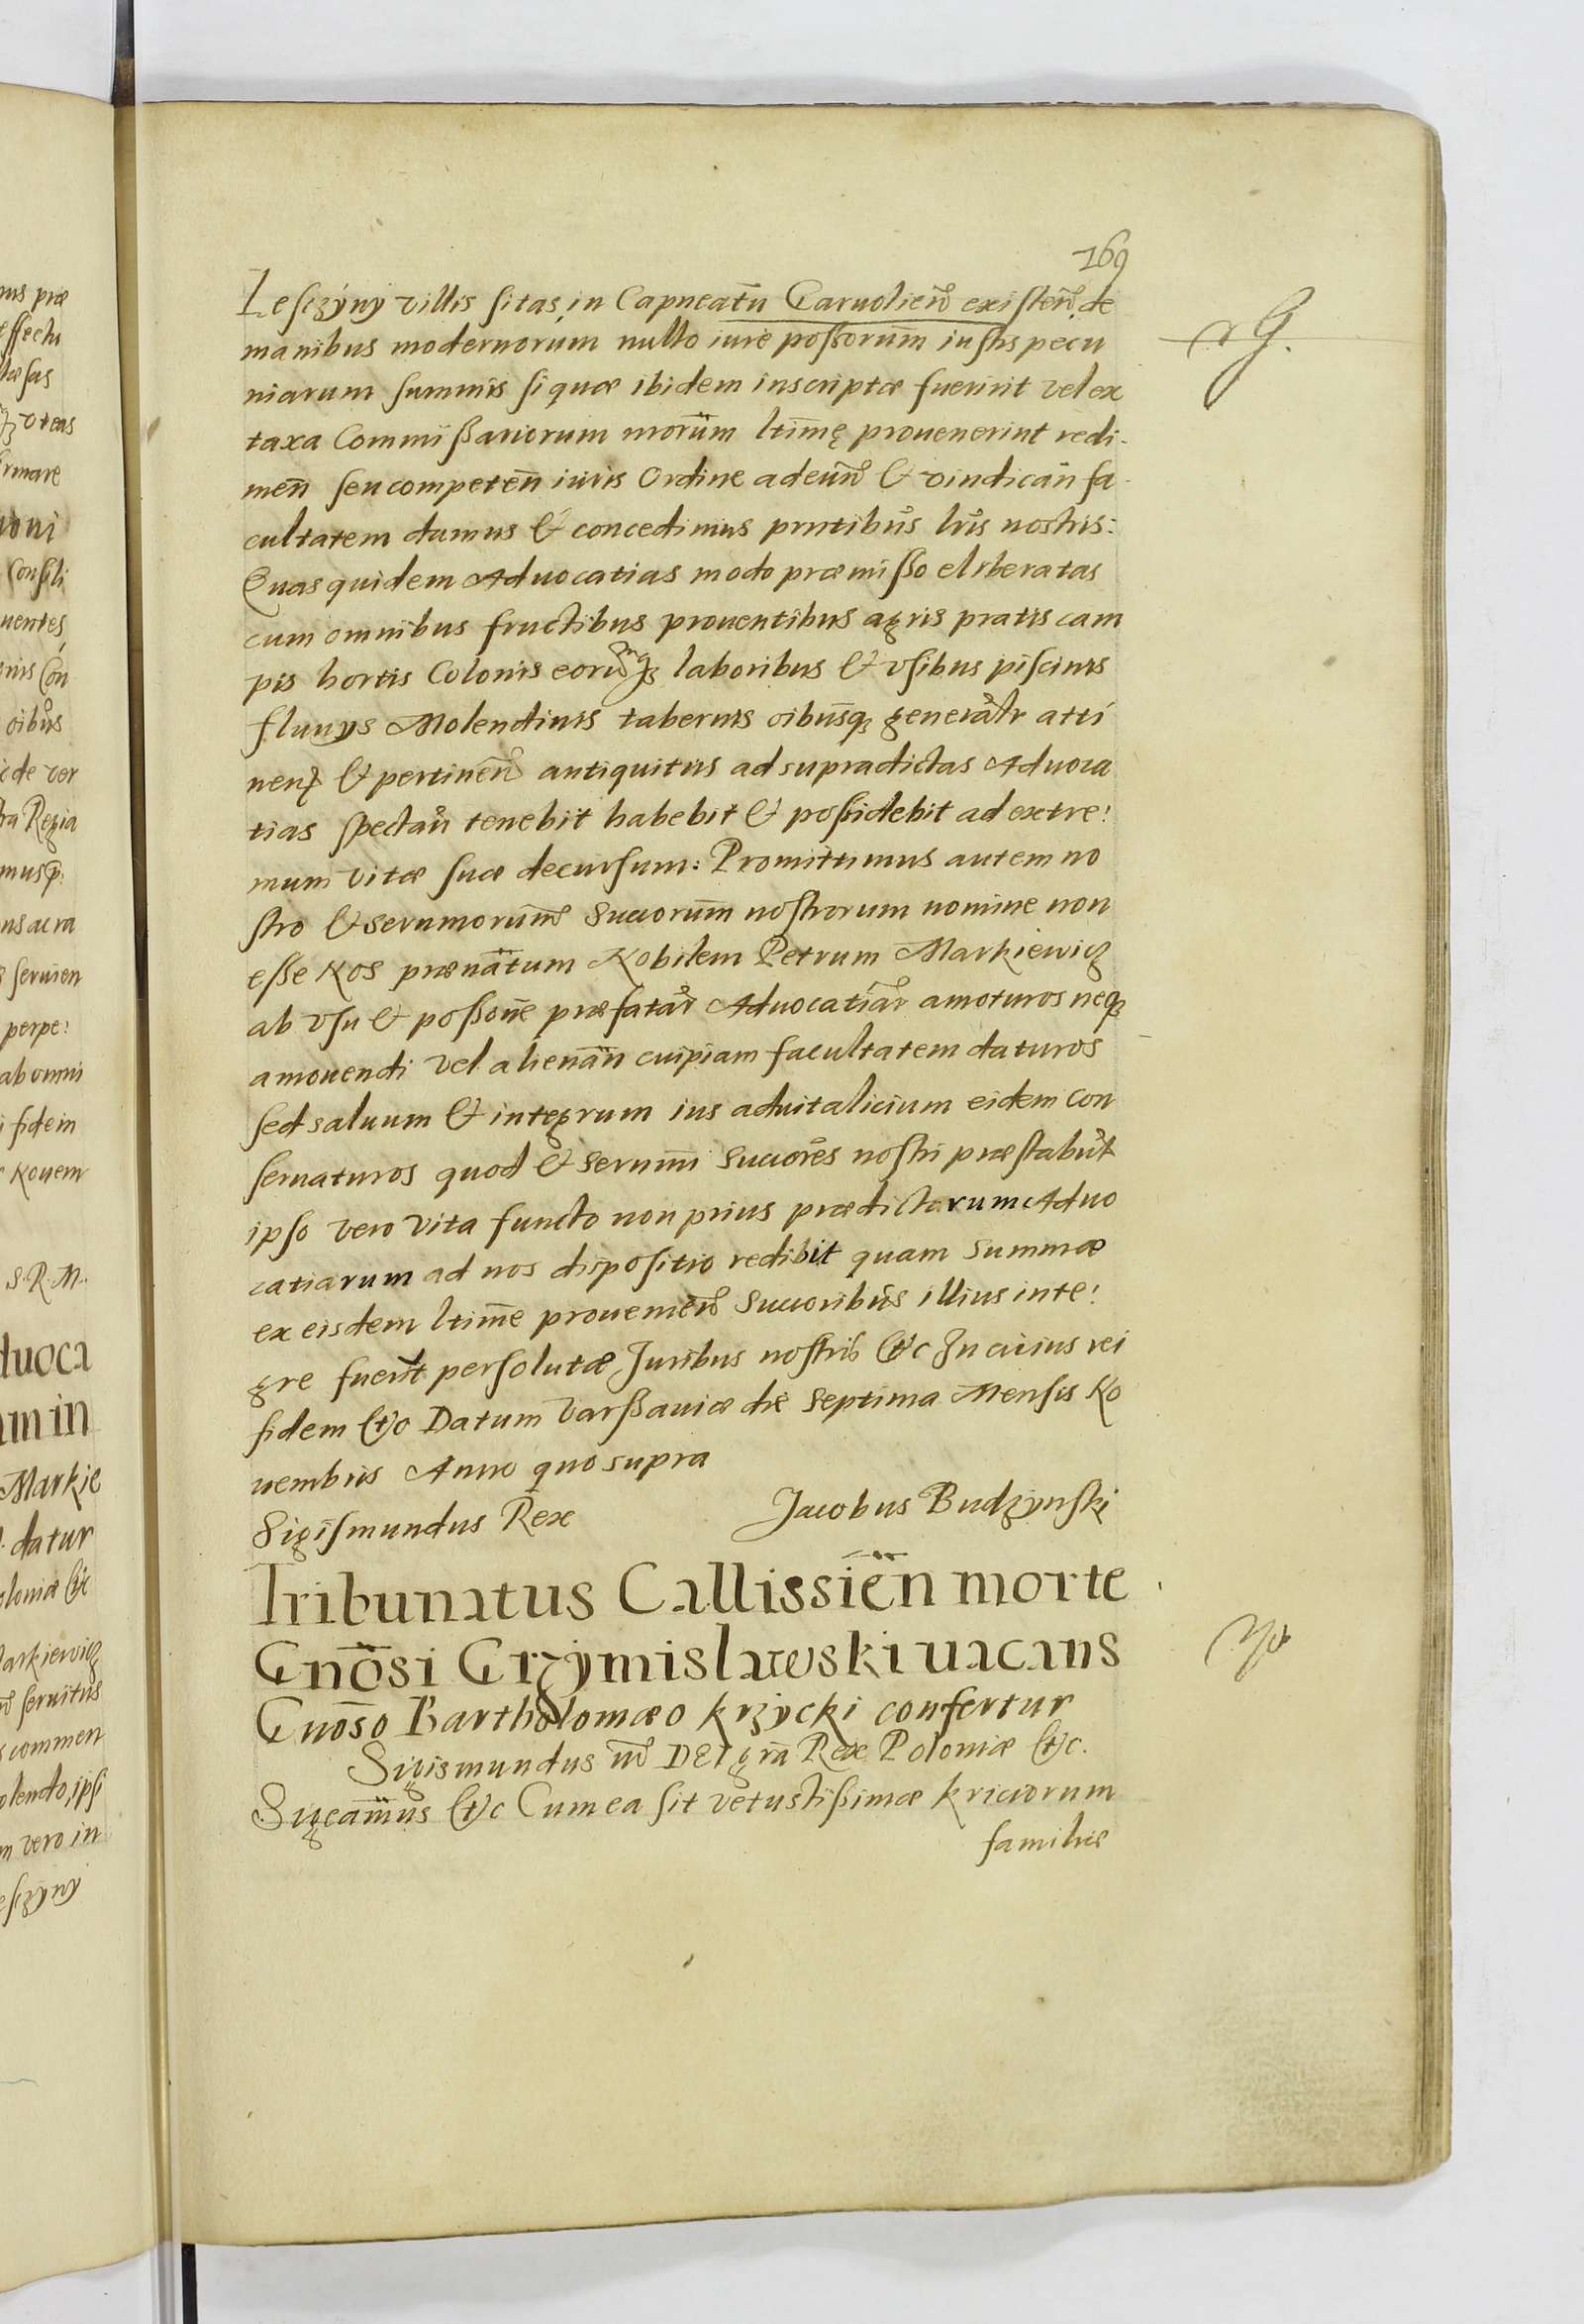 169
Lesczyny villis sitas in Capneatu Garuolien existen, de
manibus modernorum nullo iure possorum iustis pecu
niarum summis si quæ ibidem inscriptæ fuerint vel ex
taxa Commissariorum nrorum ltime prouenerint redi-
men seu competen iuris Ordine adeun & vindican fa-
cultatem damus & concedimus prntibus lris nostris:
Quas quidem Aduocatias modo præmisso eliberatas
cum omnibus fructibus prouentibus agris pratis cam
pis hortis Colonis eorumq laboribus & vsibus piscinis
fluuijs Molendinis tabernis oibusq generalr atti
nen & pertinen antiquitus ad supradictas Aduoca
tias spectan tenebit habebit & possidebit ad extre:
mum vitæ suæ decursum: Promittimus autem no
stro & serenmorum Succorum nostrorum nomine non
esse Nos prænatum Nobilem Petrum Markiewicz
ab vsu & possone præfatar Aduocatiar amoturos neq
amouendi vel alienan cuipiam facultatem daturos
sed saluum & integrum ius aduitalicium eidem con
seruaturos quod & Serenmi Succores nostri præstabut
ipso vero vita functo non prius prædictarum Aduo
catiarum ad nos dispositio redibit quam Summæ
ex eisdem ltime prouenien Succoribus illius inte:
gre fuerit persolutæ Juribus nostris &c In cuius rei
fidem &c Datum Varssauiæ die Septima Mensis No
uembris Anno quo supra
Sigismundus Rex Jacobus Budzynski
Tribunatus Callissien morte
Gnosi Grzymislawski uacans
Gnoso Bartholomæo krzycki confertur
Sigismundus DEI gra Rex Poloniæ &c.
Sigcamus &c Cum ea sit vetustissimæ kriciorum
familiæ